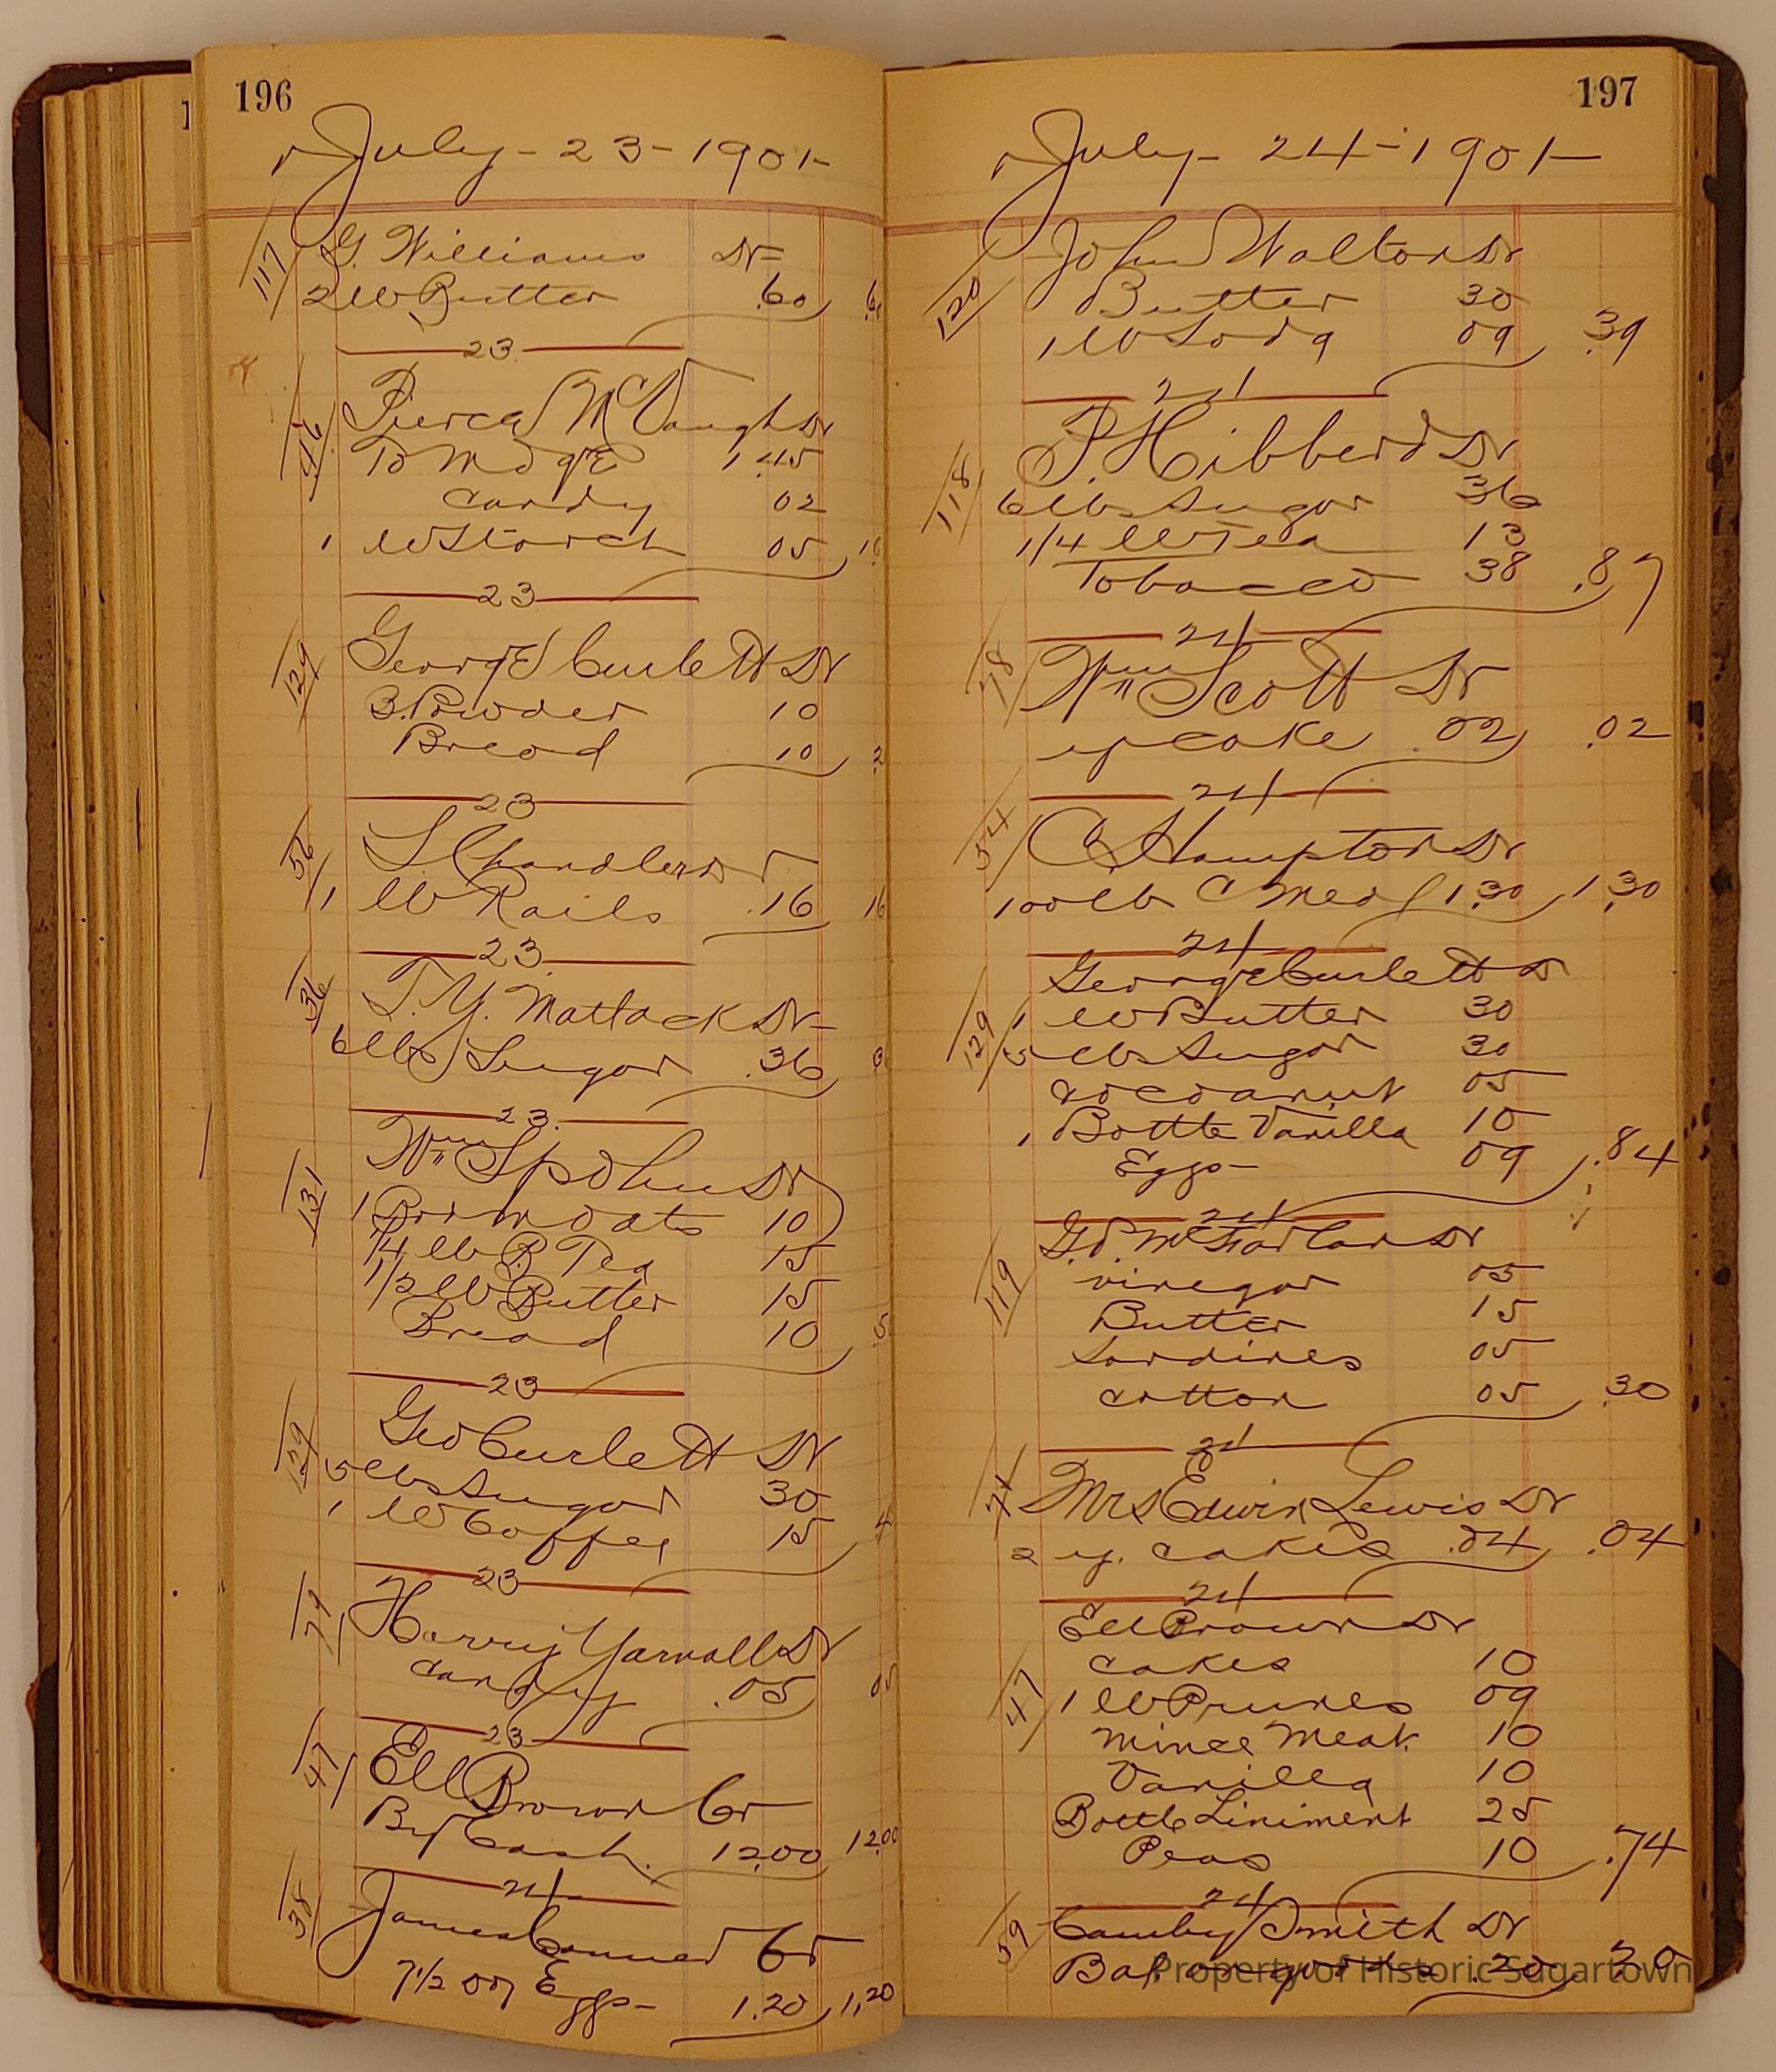 196
July - 23 - 1901 -
117
G. Williams Dr
2 lb Butter .60
23
46
Pierce McVaugh Dr
To Mdge 1.45
Candy 02
1 lb Starch 05
23
129
George Curlett Dr
3. Powder 10
Bread 10
23
56
S Chandler Dr
1 lb Rails .16 16
23
36
T. Y. Matlack Dr
6 lbs Sugar .36
23
131
Wm Spohn Dr
1 oats 10
1/4 lb B Tea 15
1/2 lb Butter 15
Bread 10
23
129
Geo Curlett Dr
5 lbs Sugar 30
1 lb Coffee 15
23
79
Harry Yarnall Dr
Candy .05 05
23
47
Ell Brown Cr
By Cash. 12.00 12.00
24
38
James Conner Cr
7 1/2 doz Eggs 1.20 1.20
197
July - 24 - 1901 -
120
John Walton Dr
Butter 30
1 lb Soda 09 .39
24
118
P. Hibberd Dr
6 lbs Sugar 36
1/4 lb Tea 13
Tobacco 38 .87
24
78
Wm Scott Dr
y cake .02 .02
24
54
C Hampton Dr
100 lb C Meal 1.30 1.30
24
George Curlett Dr
129
1 lb Butter 30
5 lbs Sugar 30
Cocoanut 05
1 Bottle Vanilla 10
Eggs 09 .84
24
G. P. McFarlan Dr
119
vinegar 05
Butter 15
Sardines 05
Cotton 05 .30
24
71
Mrs Edwin Lewis Dr
2 y. cakes .04 .04
24
Ell Brown Dr
47
Cakes 10
1 lb Prunes 09
Mince Meat 10
Vanilla 10
Bottle Liniment 25
Peas 10 .74
24
59
Camby Smith Dr
Bal on goods .20 .20
Property of Historic Sugartown